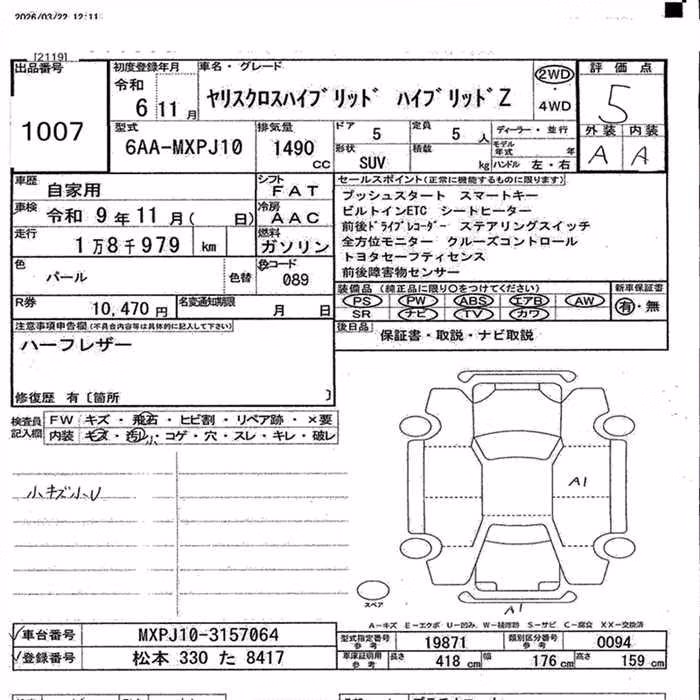 2026/03/22 12:11
[2119]
出品番号
1007
初度登録年月
令和
6 11 月
車名・グレード
ヤリスクロスハイブリッド ハイブリッドZ
2WD
・
4WD
評価点
5
外装 内装
A A
型式
6AA-MXPJ10
排気量
1490 cc
ドア
5
定員
5 人
形状
SUV
積載
kg
ディーラー・並行
モデル年式 年
ハンドル 左・右
車歴
自家用
シフト
FAT
車検
令和 9年11月( 日)
冷房
AAC
走行
1万8千979 km
燃料
ガソリン
色
パール
色替
色コード
089
R券
10,470 円
名変通知期限
月 日
セールスポイント(正常に機能するものに限ります)
プッシュスタート スマートキー
ビルトインETC シートヒーター
前後ドライブレコーダー ステアリングスイッチ
全方位モニター クルーズコントロール
トヨタセーフティセンス
前後障害物センサー
装備品 (純正品に限り○をつけてください)
PS PW ABS エアB AW
SR ナビ TV カワ
新車保証書
有・無
後日品
保証書・取説・ナビ取説
注意事項申告欄(不具合内容等は具体的に記入して下さい)
ハーフレザー
修復歴 有〔箇所 〕
検査員記入欄
FW キズ・飛石・ヒビ割・リペア跡・×要
内装 キズ・汚れ小・コゲ・穴・スレ・キレ・破レ
小キズ小U
A1
スペア
A1
A-キズ E-エクボ U-凹み W-補修跡 S-サビ C-腐食 XX-交換済
車台番号
MXPJ10-3157064
登録番号
松本 330 た 8417
型式指定番号
参考
19871
類別区分番号
参考
0094
車庫証明用
参考
長さ 418 cm
幅 176 cm
高さ 159 cm